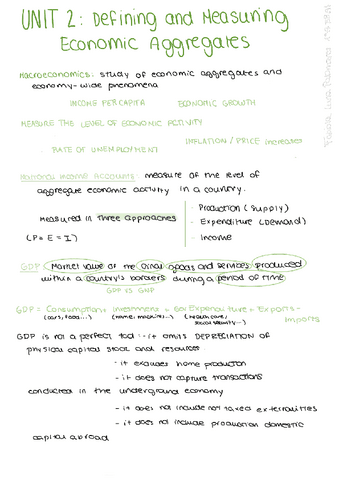 UNIT 2: Defining and Measuring
Economic Aggregates
Macroeconomics: study of economic aggregates and
economy-wide phenomena
INCOME PER CAPITA ECONOMIC GROWTH
MEASURE THE LEVEL OF ECONOMIC ACTIVITY
INFLATION / PRICE increases
- RATE OF UNEMPLOYMENT
National Income Accounts: measure of the level of
aggregate economic activity in a country.
- Production (Supply)
Measured in three approaches - Expenditure (Demand)
(P = E = I) - Income
GDP: Market value of the final goods and services produced
within a country's borders during a period of time
GDP VS. GNP
GDP = Consumption + Investment + Gov Expenditure + Exports -
(cars, food...) (healthcare, Imports
social security...)
GDP is not a perfect tool: - it omits DEPRECIATION OF
physical capital stock and resources
- it excludes home production
- it does not capture transactions
conducted in the underground economy
- it does not include not taxed externalities
- it does not include production domestic
capital abroad